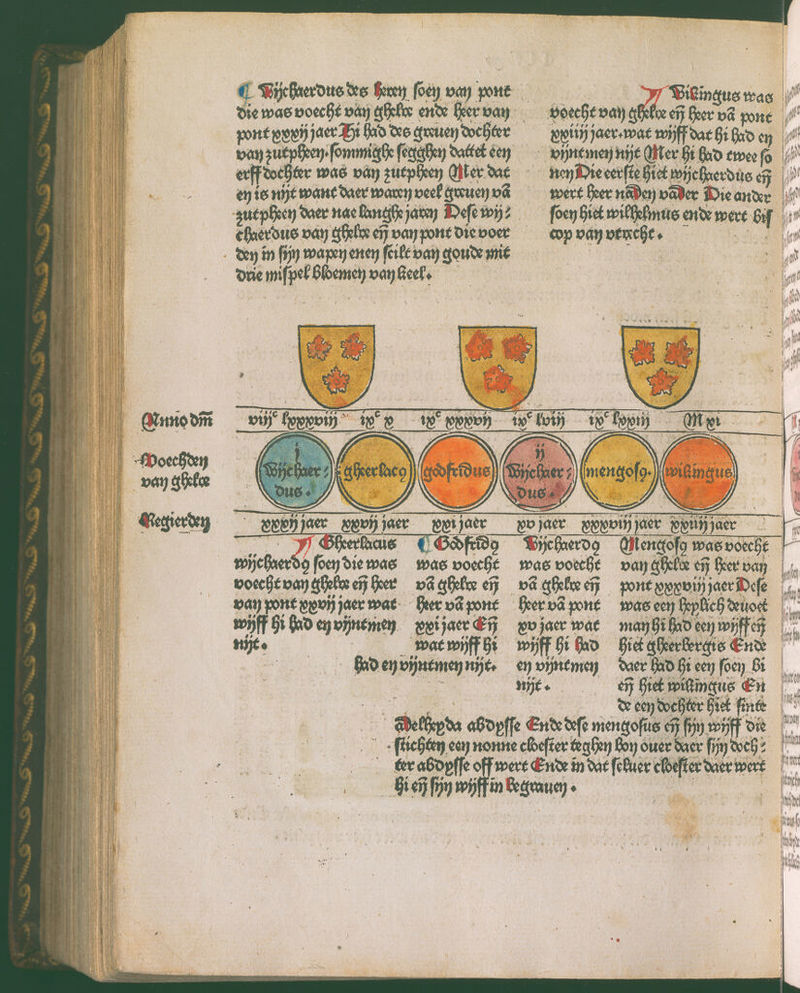 ¶ Wijchaerdus des heren soen van pont
die was voecht van ghelre ende heer van
pont xxxij jaer Hi had des greuen dochter
van zutpheen. sommighe segghen dattet een
erffdochter was van zutpheen Mer dat
en is nijt want daer waren veel greuen vā
zutpheen daer nae langhe jaren Dese wij⸗
chaerdus van ghelre eñ van pont die voer
den in sijn wapen enen scilt van goude mit
drie mispel bloemen van keel.
¶ Wikingus was
voecht van ghelre eñ heer vā pont
xxiiij jaer. wat wijff dat hi had en
vijnt men nijt Mer hi had twee so
nen Die eerste hiet wijchaerdus eñ
wert heer na den vader Die ander
soen hiet wilhelmus ende wert bis
cop van vtrecht.
Anno dm̄
viijᶜ lxxxviij ixᶜ x ixᶜ xxxvij ixᶜ lviij ixᶜ lxxiij M xi
Voechden
van ghelre
j
Wijchaer⸗
dus.
gheerlacꝰ
godfridus
ij
Wijchaer⸗
dus.
mengosꝰ.
wikingus
Regierden
xxxij jaer xxvij jaer xxi jaer xv jaer xxxviij jaer xxiiij jaer
¶ Gheerlacus
wijchaerdꝰ soen die was
voecht van ghelre eñ heer
van pont xxvij jaer wat
wijff hi had en vijntmen
nijt.
¶ Godfridꝰ
was voecht
vā ghelre eñ
heer vā pont
xxi jaer Eñ
wat wijff hi
had en vijntmen nijt.
Wijchaerdꝰ
was voecht
vā ghelre eñ
heer vā pont
xv jaer wat
wijff hi had
en vijntmen
nijt.
Mengosꝰ was voecht
van ghelre eñ heer van
pont xxxviij jaer Dese
was een heylich deuoet
man hi had een wijff eñ
hiet gheerbergis Ende
daer had hi een soen bi
eñ hiet wikingus En
de een dochter hiet sinte
Adelheyda abdysse Ende dese mengosus eñ sijn wijff die
stichten een nonne cloester teghen bon ouer daer sijn doch⸗
ter abdysse off wert Ende in dat seluer cloester daer wert
hi eñ sijn wijff in begrauen.